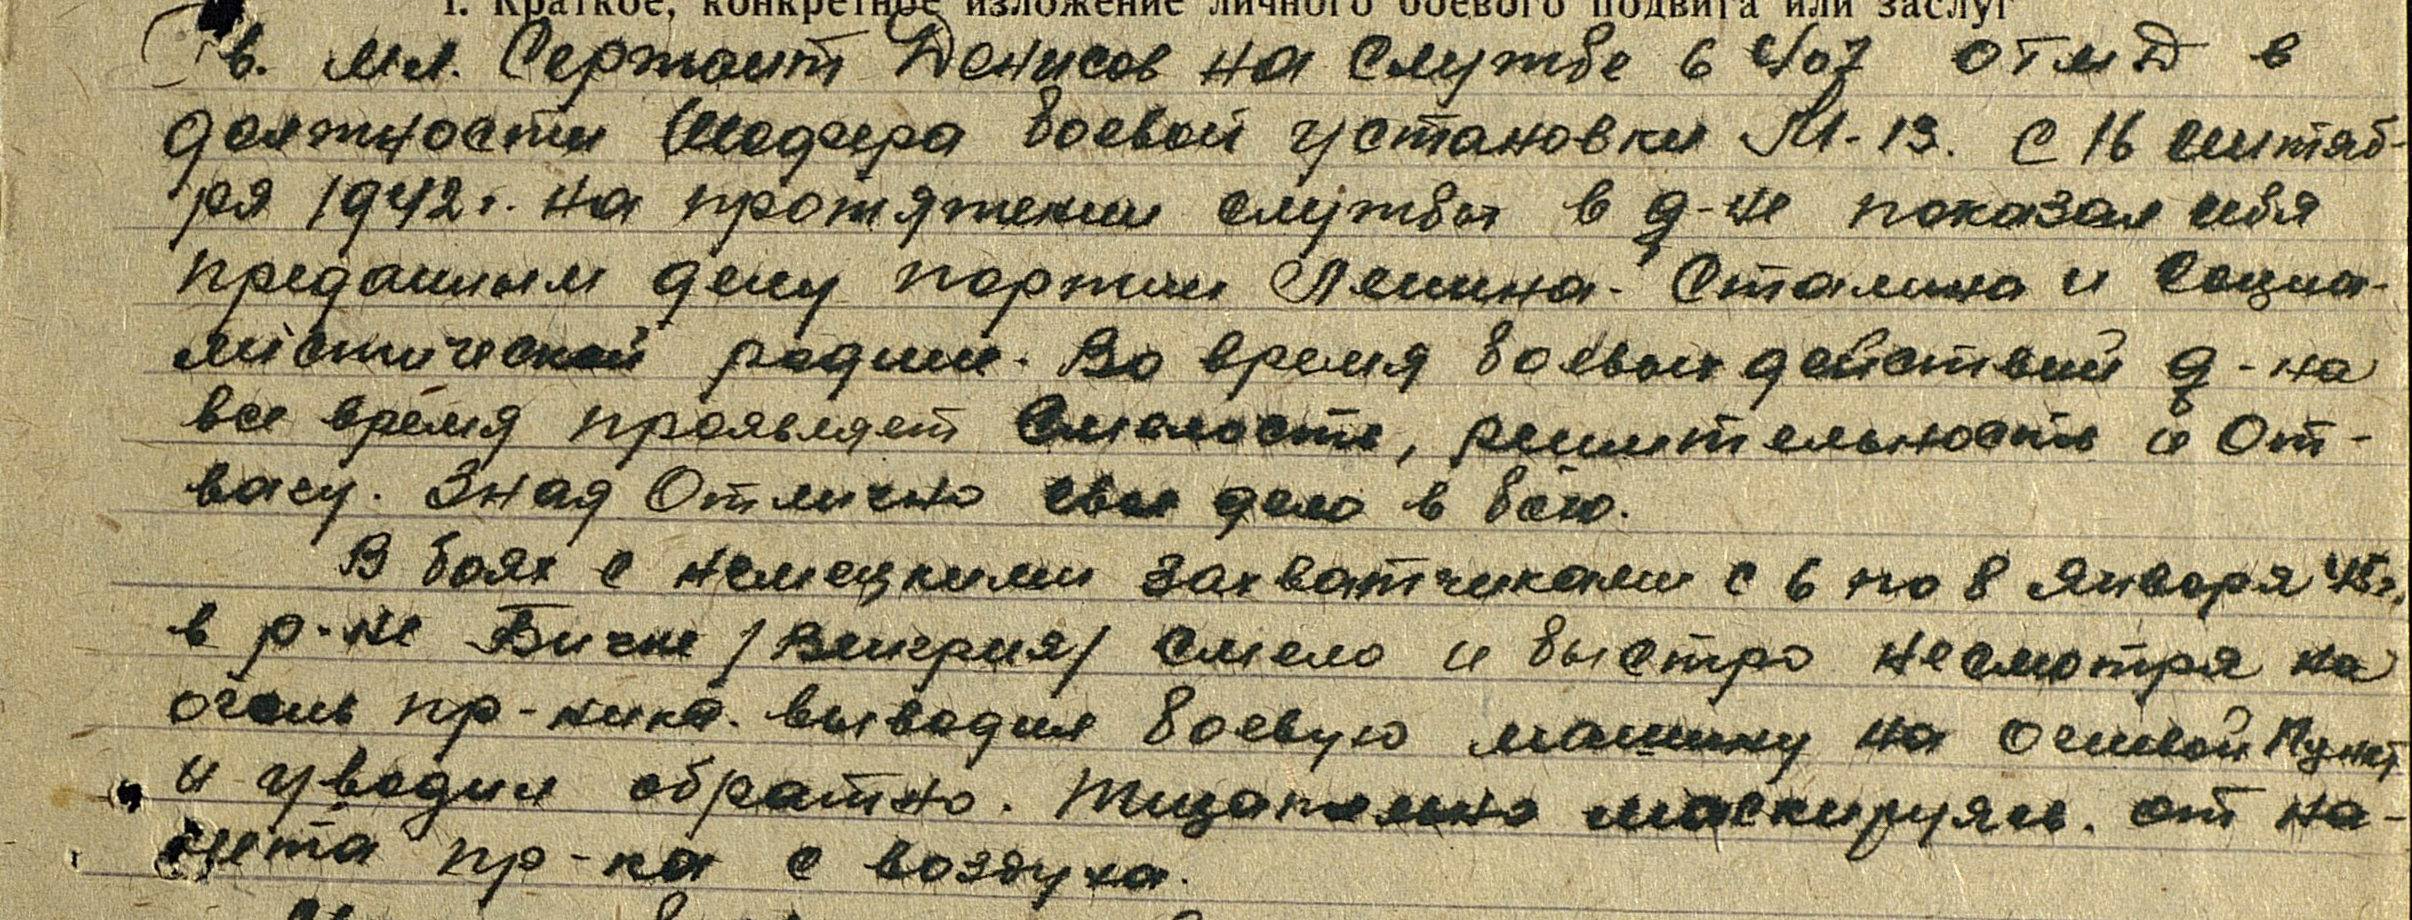 1. Краткое, конкретное изложение личного боевого подвига или заслуг
Гв. мл. Сержант Денисов на службе в 407 ОГМД в
должности шофера боевой установки М-13. с 16 сентяб-
ря 1942 г. на протяжении службы в д-не показал себя
преданным делу партии Ленина-Сталина и социа-
листической родине. Во время боевых действий д-на
все время проявляет смелость, решительность и от-
вагу. Зная отлично свое дело в бою.
В боях с немецкими захватчиками с 6 по 8 января 45 г.
в р-не Бичке /Венгрия/ смело и быстро несмотря на
огонь пр-ника. выводил боевую машину на огневой пункт
и уводил обратно. Тщательно маскируясь. от на-
лета пр-ка с воздуха.